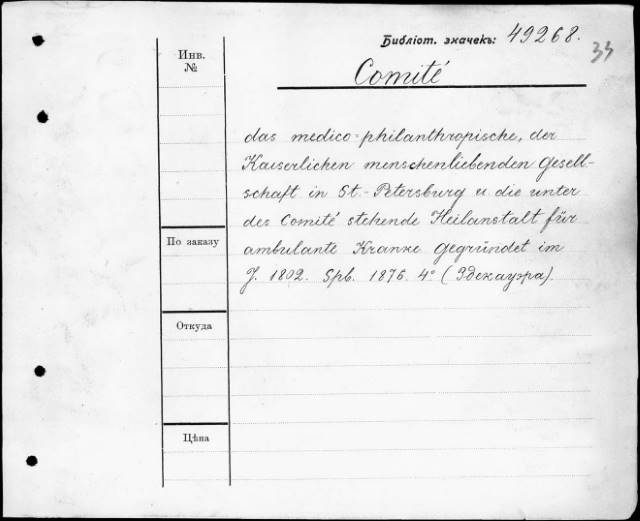 Библіот. значекъ: 49268.
33
Инв.
№
Comité
das medico-philanthropische, der
Kaiserlichen menschenliebenden Gesell-
schaft in St.-Petersburg u die unter
des Comité stehende Heilanstalt für
ambulante Kranke gegründet im
J. 1802. Spb. 1876. 4° (Эдекауэра).
По заказу
Откуда
Цѣна